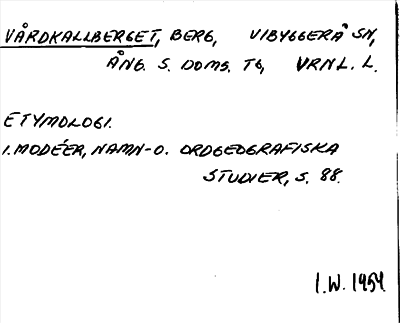 VÅRDKALLBERGET, BERG, VIBYGGERÅ SN,
ÅNG. S. DOMS. TG, VRNL. L.
ETYMOLOGI.
I. MODÉER, NAMN- O. ORDGEOGRAFISKA
STUDIER, S. 88.
I.W. 1954.